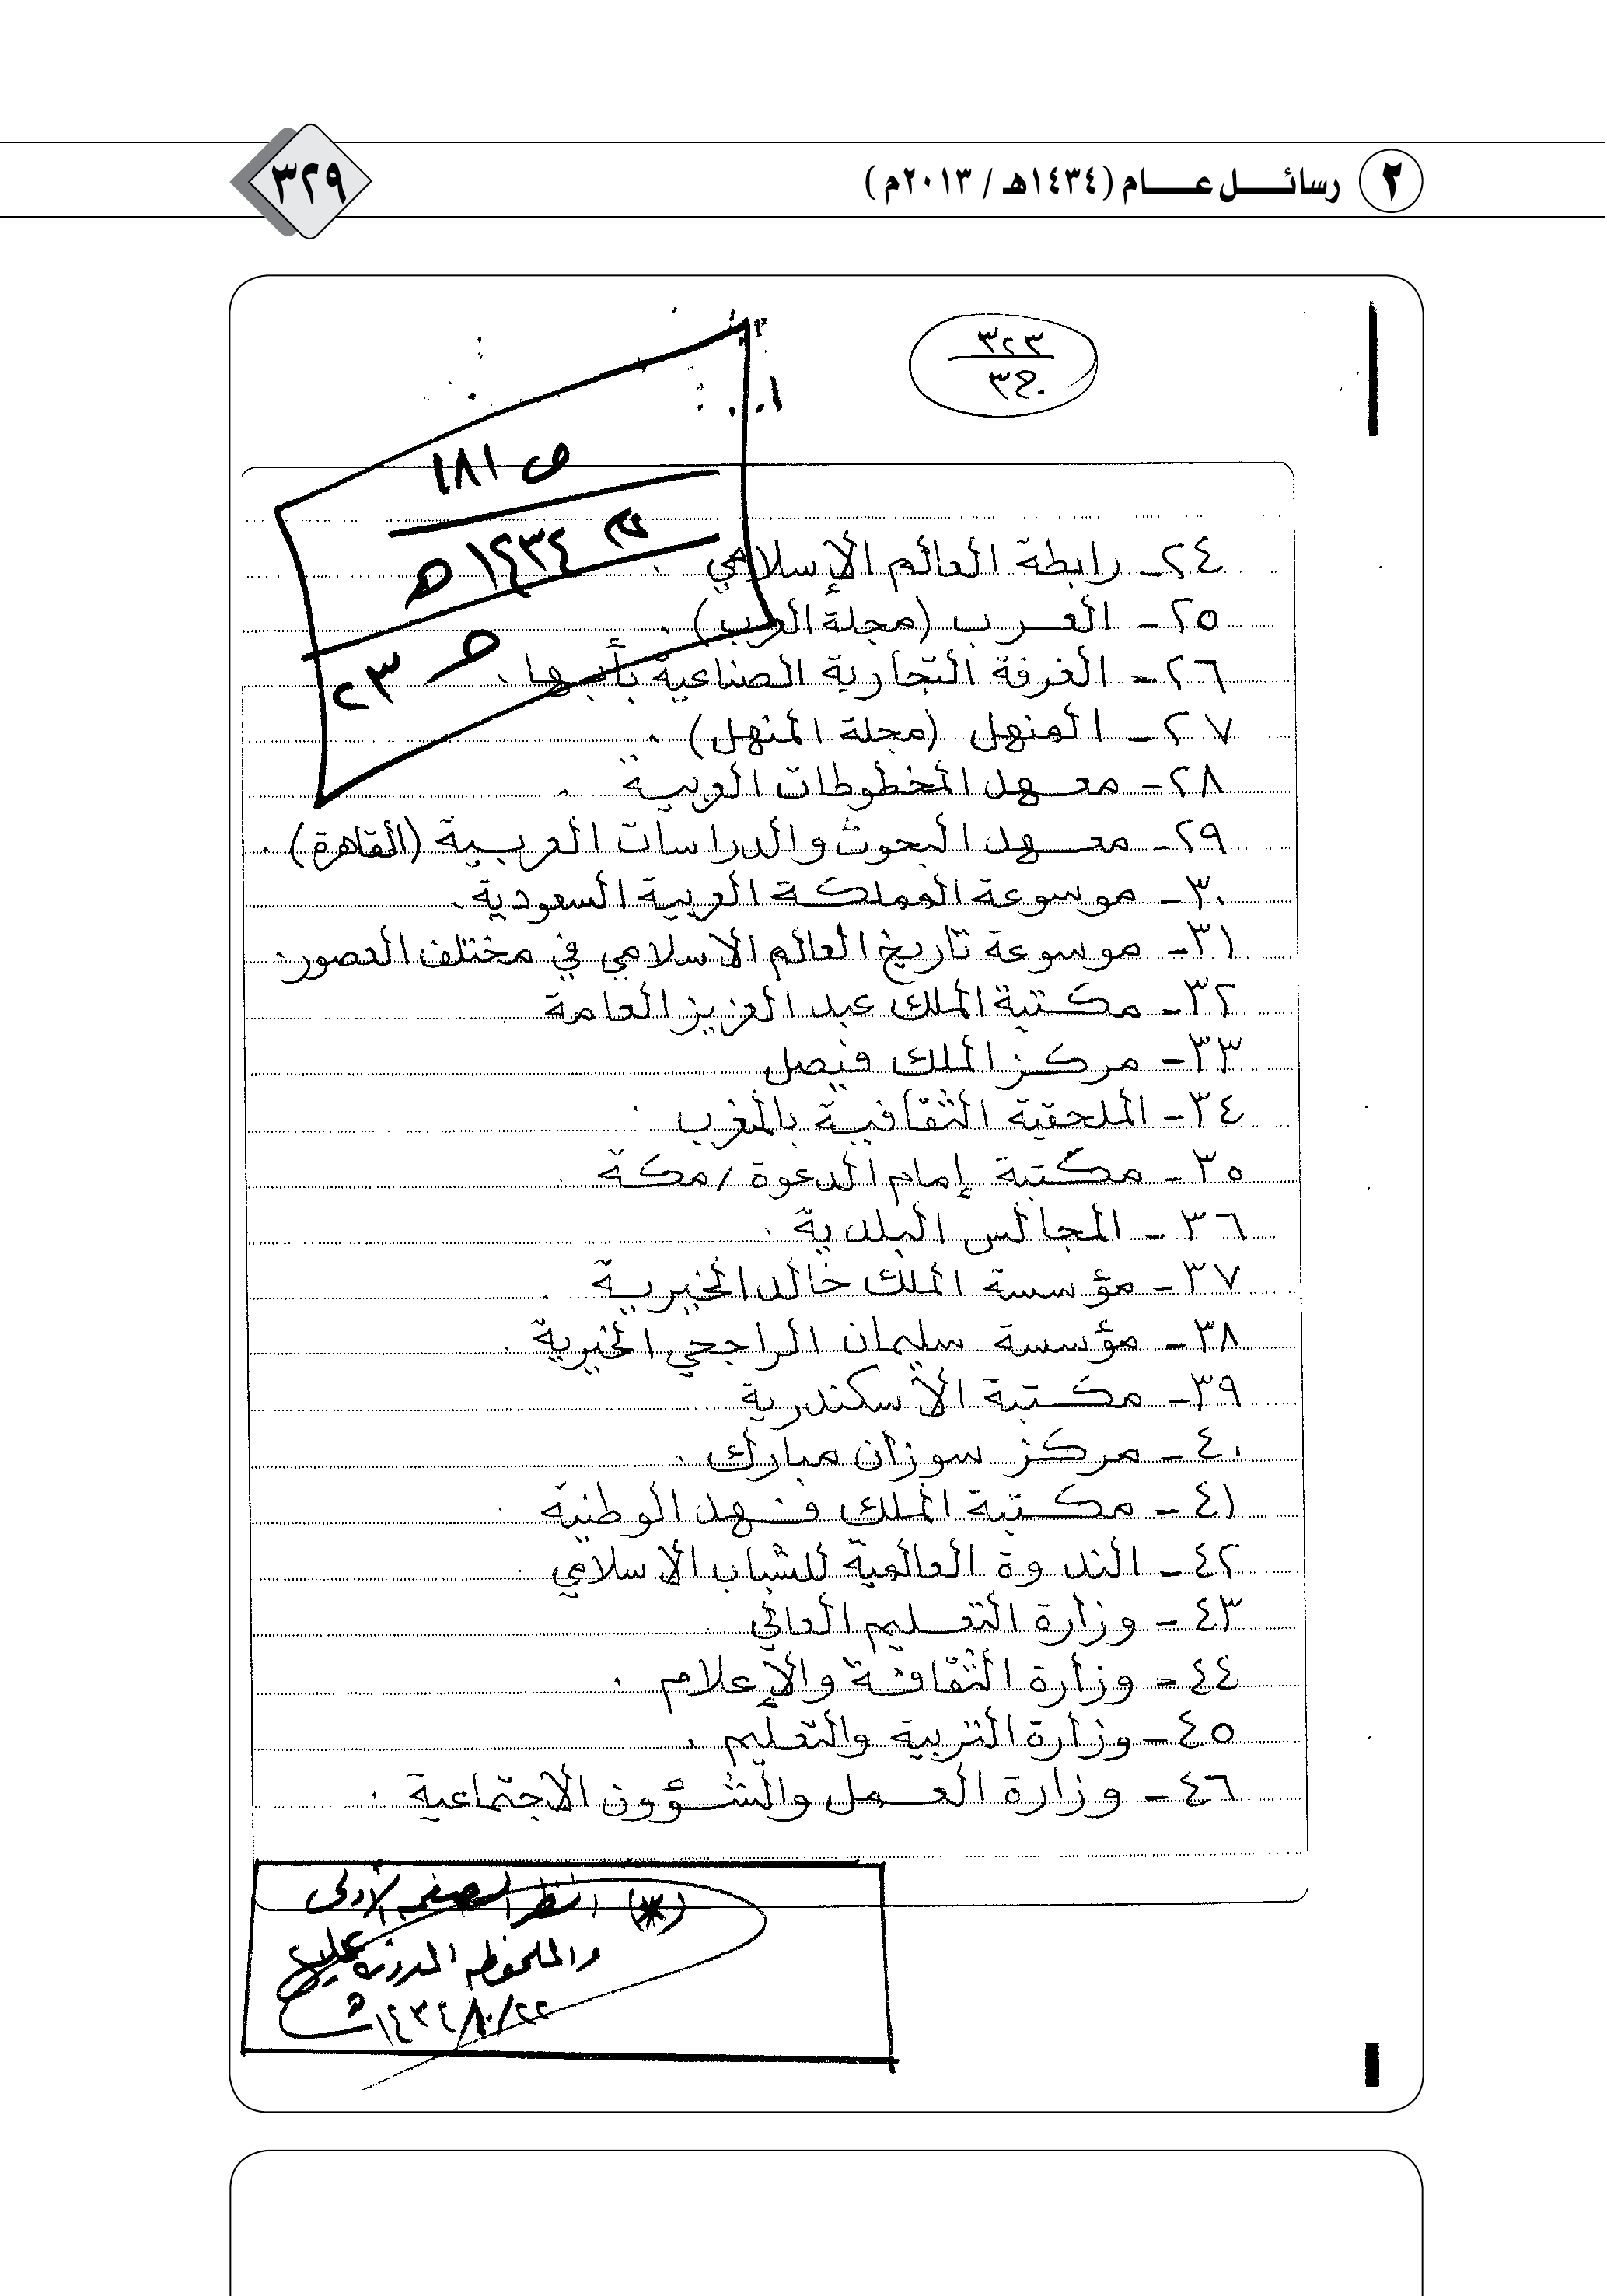 ٢ رسائل عام (١٤٣٤هـ / ٢٠١٣م)
٣٢٩
٣٢٣
ص ١٨١
١٤٣٤هـ
٢٣
٢٤- رابطة العالم الإسلامي .
٢٥- العرب (مجلة العرب) .
٢٦- الغرفة التجارية الصناعية بأبها .
٢٧- المنهل (مجلة المنهل) .
٢٨- معهد المخطوطات العربية .
٢٩- معهد البحوث والدراسات العربية (القاهرة) .
٣٠- موسوعة المملكة العربية السعودية .
٣١- موسوعة تاريخ العالم الاسلامي في مختلف العصور .
٣٢- مكتبة الملك عبد العزيز العامة
٣٣- مركز الملك فيصل
٣٤- الملحقية الثقافية بالمغرب .
٣٥- مكتبة إمام الدعوة / مكة
٣٦- المجالس البلدية .
٣٧- مؤسسة الملك خالد الخيرية .
٣٨- مؤسسة سليمان الراجحي الخيرية .
٣٩- مكتبة الأسكندرية
٤٠- مركز سوزان مبارك .
٤١- مكتبة الملك فهد الوطنية .
٤٢- الندوة العالمية للشباب الاسلامي .
٤٣- وزارة التعليم العالي
٤٤- وزارة الثقافة والإعلام .
٤٥- وزارة التربية والتعليم .
٤٦- وزارة العمل والشؤون الاجتماعية .
(*) انظر الصفحة الأولى
والملحوظة المدونة عليها
١٤٣٤/١٠/٢٢هـ